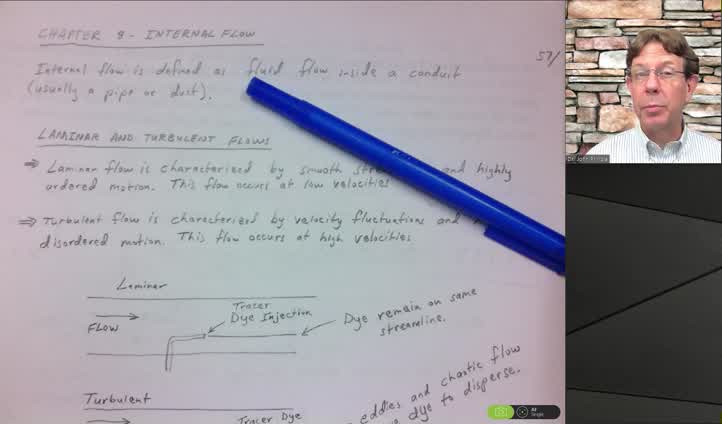 CHAPTER 8 - INTERNAL FLOW
57/
Internal flow is defined as fluid flow inside a conduit
(usually a pipe or duct).
LAMINAR AND TURBULENT FLOWS
⇒ Laminar flow is characterized by smooth and highly
ordered motion. This flow occurs at low velocities
⇒ Turbulent flow is characterized by velocity fluctuations and
disordered motion. This flow occurs at high velocities
Laminar
FLOW
Tracer
Dye Injection
Dye remain on same
streamline.
Turbulent
Tracer Dye
eddies and chaotic flow
dye to disperse.